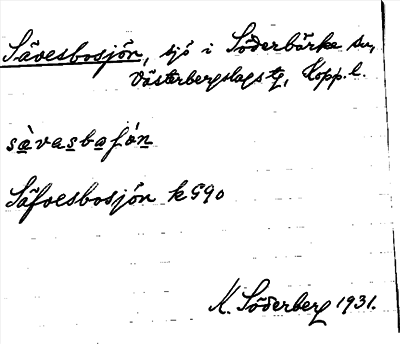 Sävesbosjön, sjö i Söderbärke sn,
Västerbergslags tg, Kopp. l.
sàvasbaʃön
Säfvesbosjön k G90
K. Söderberg 1931.